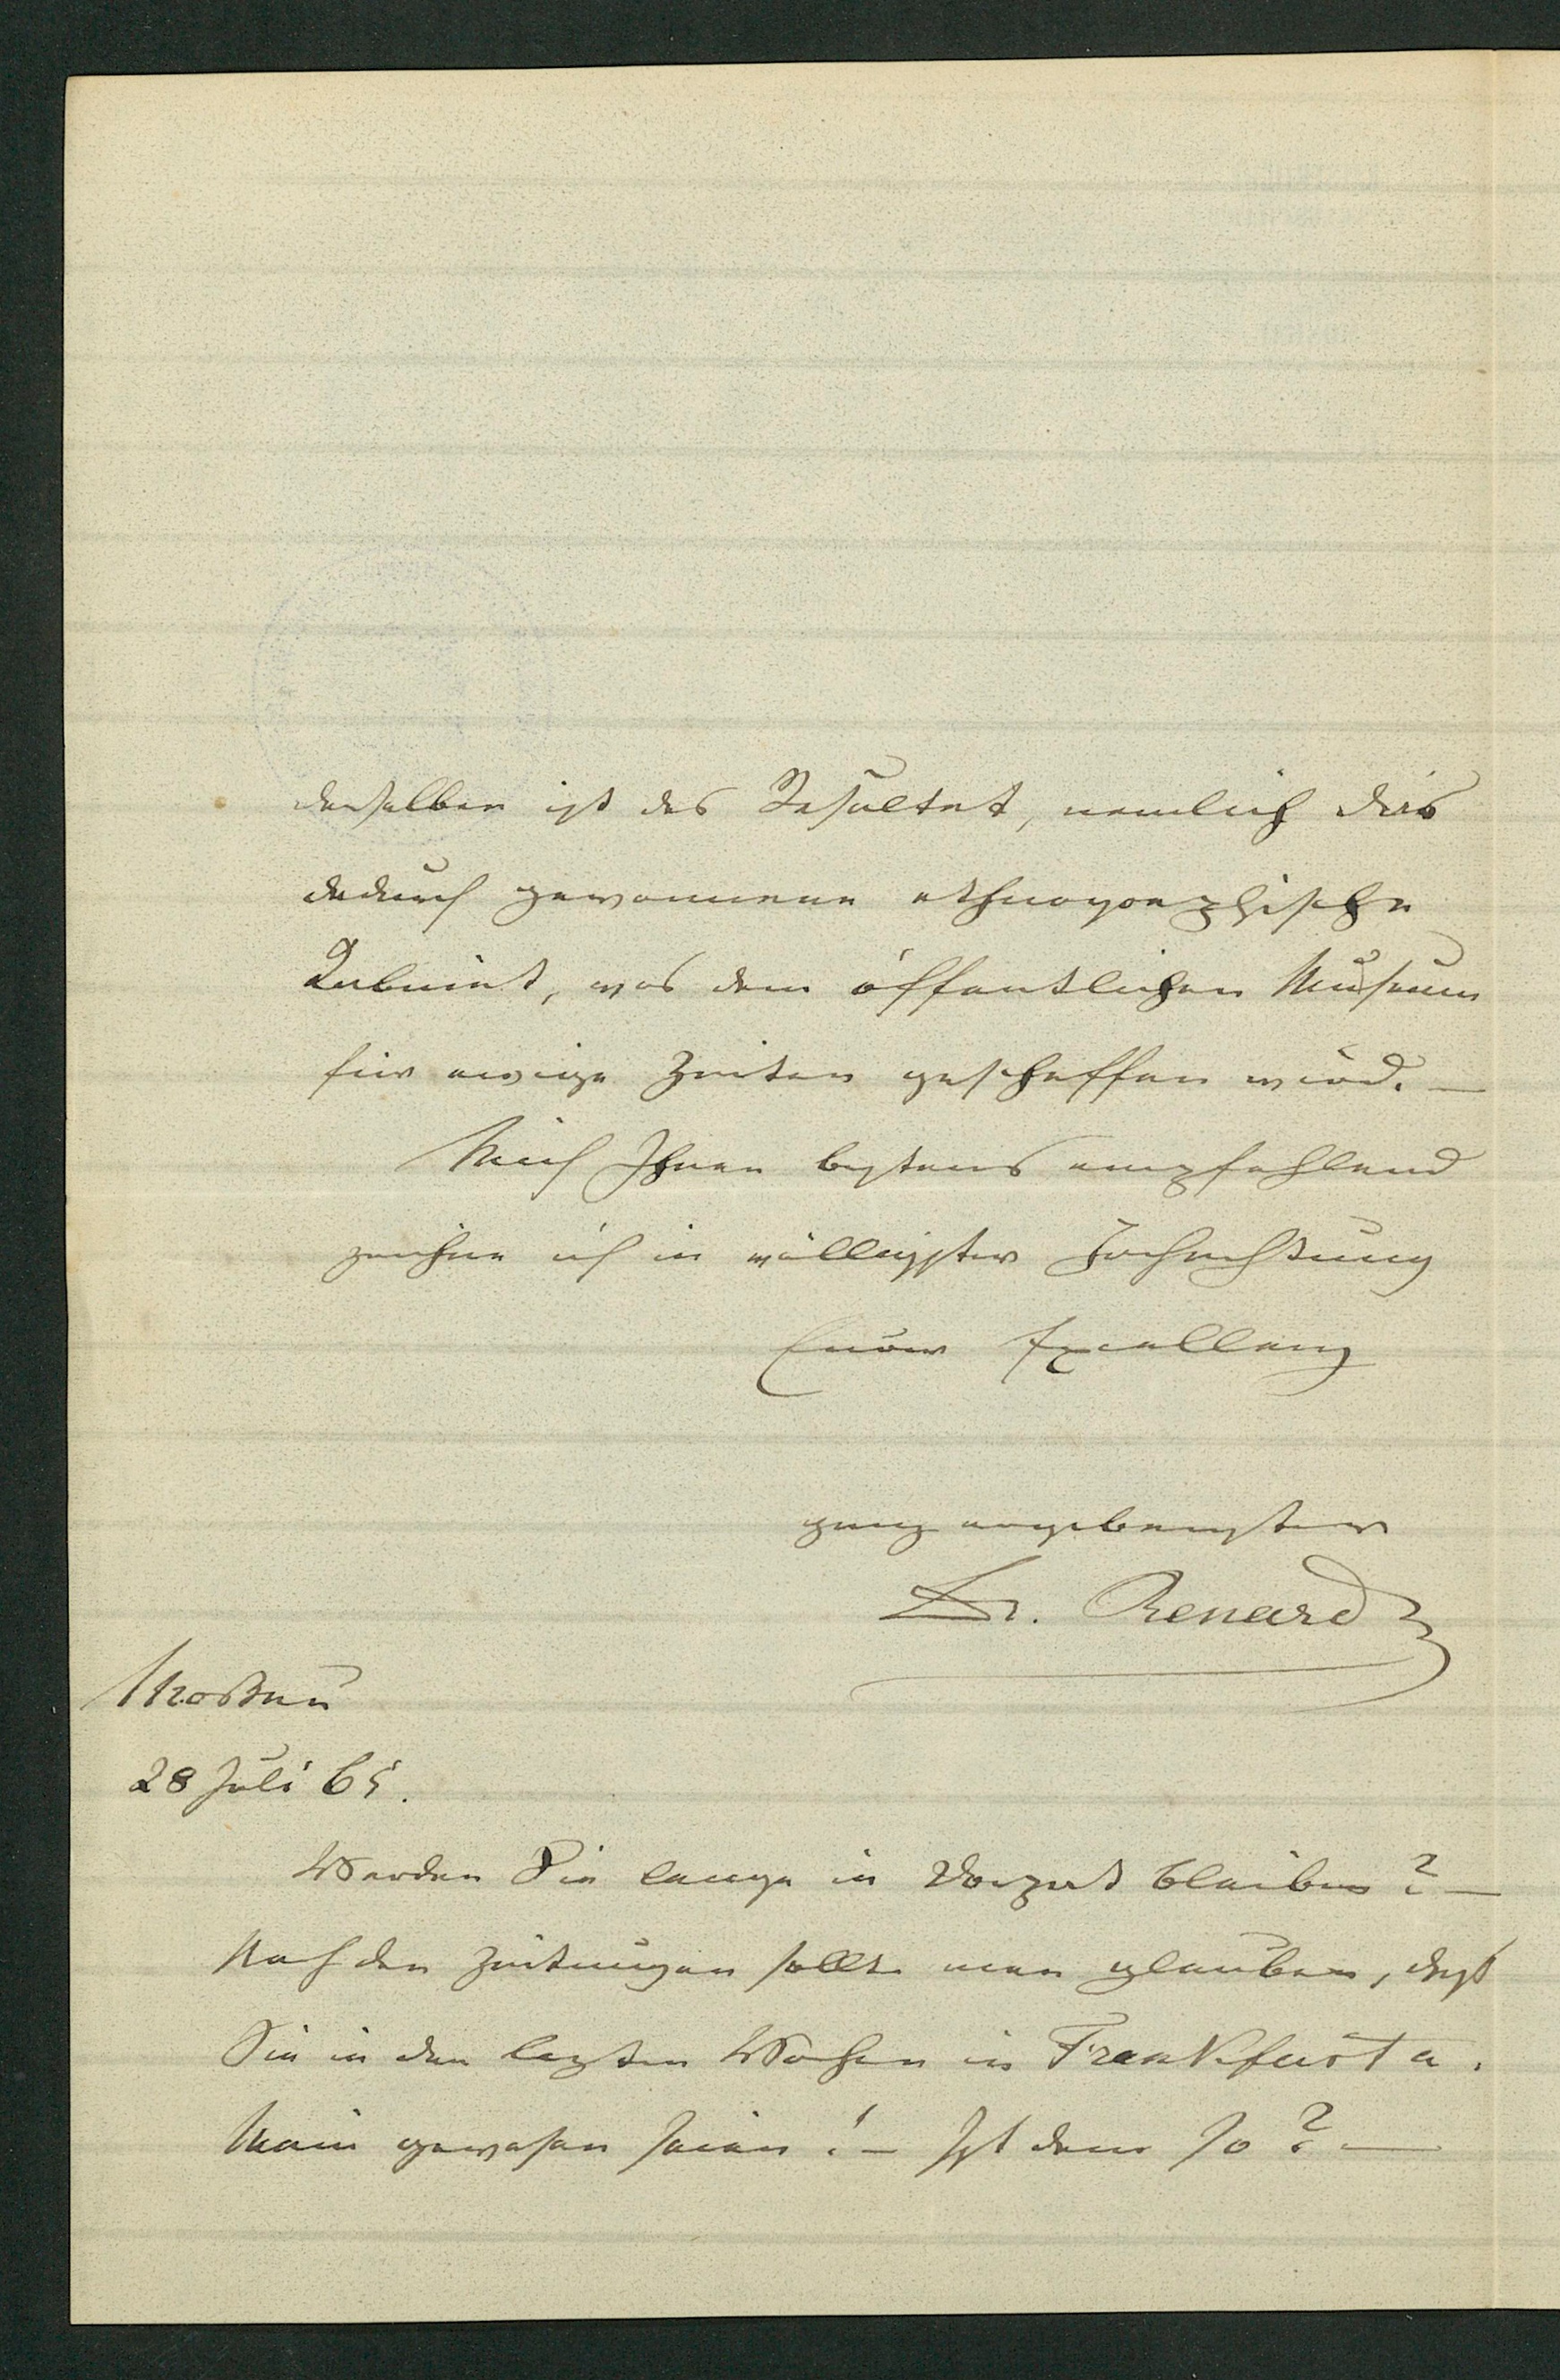 derselben ist das Resultat, nemlich das
dadurch gewonnene ethnographische
Kabinet, was dem öffentlichen Museum
für ewige Zeiten geschaffen wird. —
Mich Ihnen bestens empfehlend
zeichne ich in völligster Hochachtung
Euer Excellenz
ganz ergebenster
Dr. Renard
Moskau
28 Juli 65.
Werden Sie lange in Dorpat bleiben? —
Nach den Zeitungen sollte man glauben, daß
Sie in den lezten Wochen in Frankfurt a.
Main gewesen seien! — Ist dem so? —